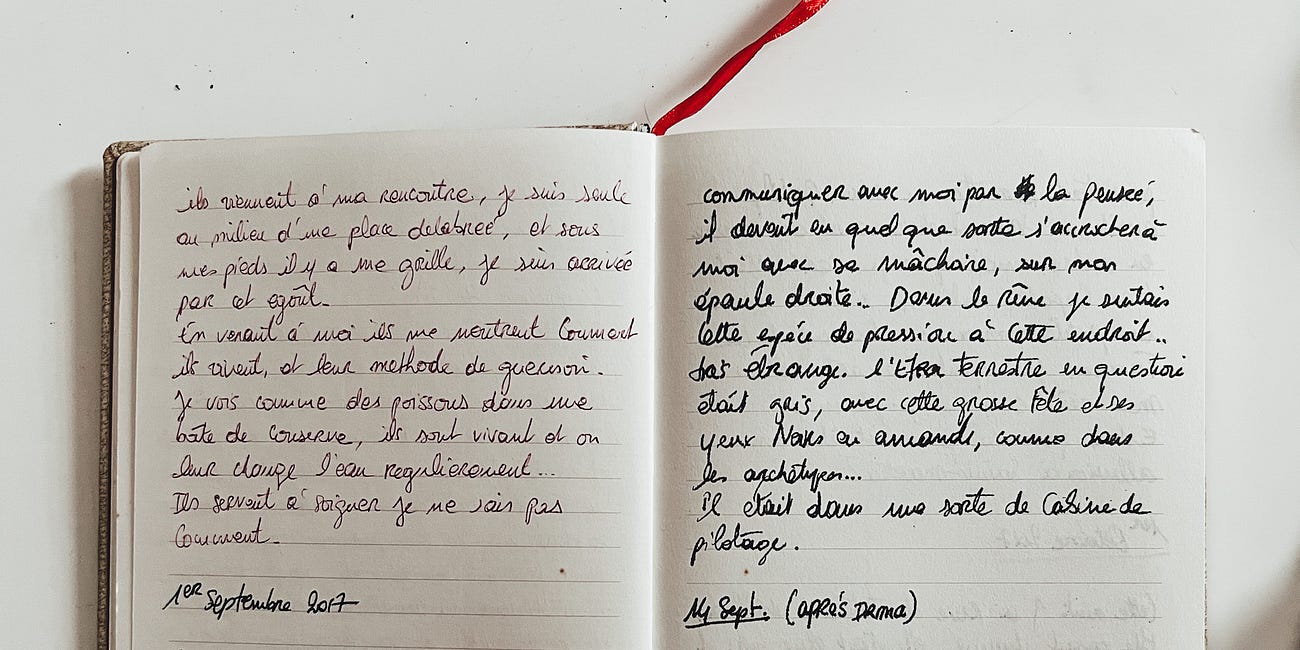 ils viennent à ma rencontre, je suis seule
au milieu d'une place delabreé, et sous
mes pieds il y a une grille, je suis arrivée
par cet egoût.
En venant à moi ils me montrent Comment
ils vivent, et leur methode de guerison.
Je vois comme des poissons dans une
boîte de Conserve, ils sont vivant et on
leur change l'eau regulierement...
Ils servent à soigner je ne sais pas
Comment.
1ER Septembre 2017
communiquer avec moi par la penseé,
il devait en quelque sorte s'accrocher à
moi avec sa mâchoire, sur mon
épaule droite.. Dans le rêve je sentais
Cette espéce de pression à Cette endroit..
trés étrange. l'Extra terrestre en question
était gris, avec cette grosse tête et ses
yeux Noirs en amande, comme dans
les archétypes...
Il était dans une sorte de Cabine de
pilotage.
14 Sept. (APRÉS DRMA)